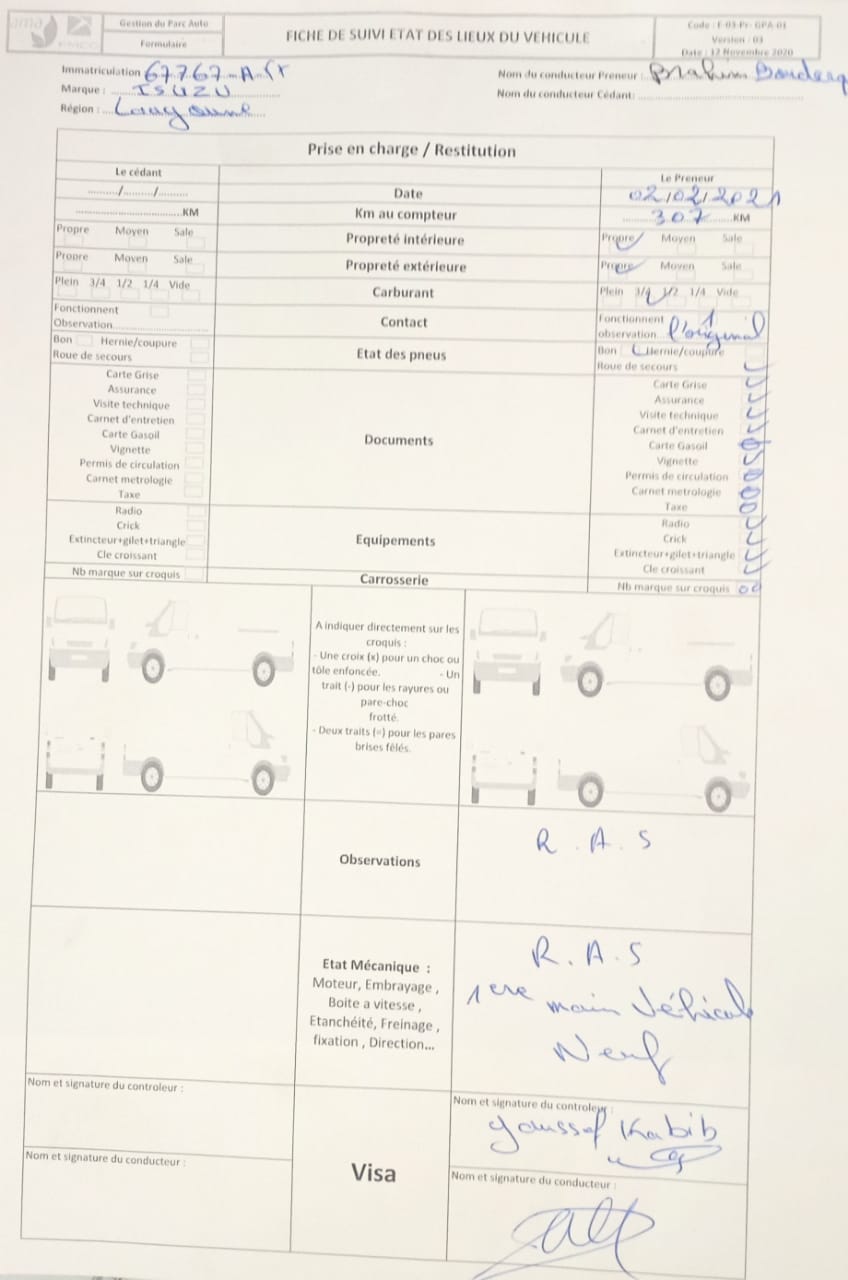 Gestion du Parc Auto
Formulaire
FICHE DE SUIVI ETAT DES LIEUX DU VEHICULE
Code : F-03-Pr- GPA-01
Version : 03
Date : 12 Novembre 2020
Immatriculation 67767-A-
Marque : ISUZU
Région : Laayoune
Nom du conducteur Preneur : Brahim
Nom du conducteur Cédant:
Prise en charge / Restitution
Le cédant
Le Preneur
........./........./......... Date 02/02/2021
KM Km au compteur 307 KM
Propre Moyen Sale Propreté intérieure Propre Moyen Sale
Propre Moven Sale Propreté extérieure Propre Moven Sale
Plein 3/4 1/2 1/4 Vide Carburant Plein 3/4 1/2 1/4 Vide
Fonctionnent Contact Fonctionnent 1
Observation observation l'original
Bon Hernie/coupure Etat des pneus Bon Hernie/coupure
Roue de secours Roue de secours
Carte Grise Carte Grise
Assurance Assurance
Visite technique Visite technique
Carnet d'entretien Carnet d'entretien
Carte Gasoil Documents Carte Gasoil
Vignette Vignette
Permis de circulation Permis de circulation
Carnet metrologie Carnet metrologie
Taxe Taxe
Radio Radio
Crick Crick
Extincteur+gilet+triangle Equipements Extincteur+gilet+triangle
Cle croissant Cle croissant
Nb marque sur croquis Carrosserie Nb marque sur croquis 00
A indiquer directement sur les
croquis :
- Une croix (x) pour un choc ou
tôle enfoncée. - Un
trait (-) pour les rayures ou
pare-choc
frotté.
- Deux traits (=) pour les pares
brises fêlés.
Observations R.A.S
Etat Mécanique : R.A.S
Moteur, Embrayage , 1ere main Véhicule
Boite a vitesse ,
Etanchéité, Freinage , Neuf
fixation , Direction...
Nom et signature du controleur : Nom et signature du controleur :
Youssef Kabib
Visa
Nom et signature du conducteur : Nom et signature du conducteur :